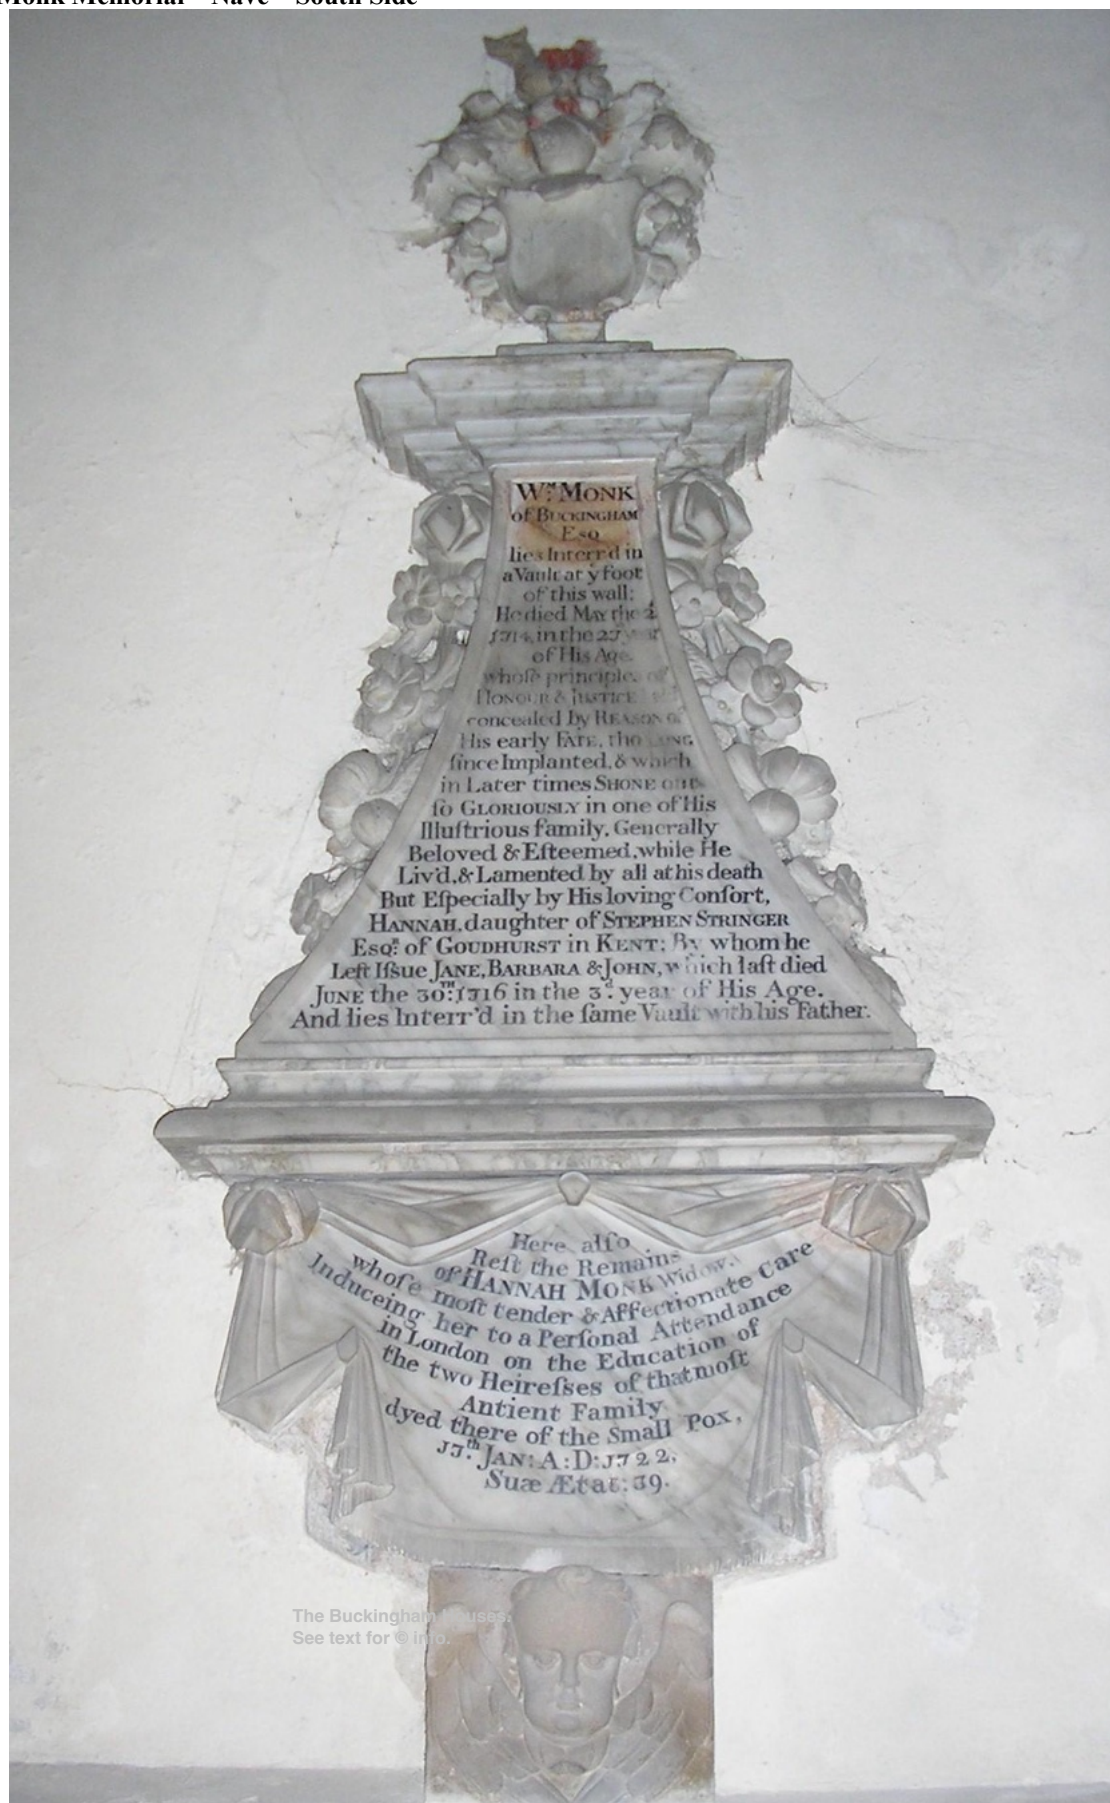 Monk Memorial – Nave – South Side
W.ᴹ MONK
of BUCKINGHAM
Esq
lies Interr'd in
a Vault at y foot
of this wall:
He died MAY the 2
1714, in the 27 year
of His Age.
whoſe principles of
HONOUR & JUSTICE
concealed by REASON of
His early FATE, tho LONG
ſince Implanted, & which
in Later times SHONE out
ſo GLORIOUSLY in one of His
Illuſtrious family. Generally
Beloved & Eſteemed, while He
Liv'd, & Lamented by all at his death
But Eſpecially by His loving Conſort,
HANNAH, daughter of STEPHEN STRINGER
Esq.ᴿ of GOUDHURST in KENT: By whom he
Left Iſsue JANE, BARBARA & JOHN, which laſt died
JUNE the 30.ᵀᴴ 1716 in the 3.ᵈ year of His Age.
And lies Interr'd in the ſame Vault with his Father.
Here alſo
Reſt the Remains
of HANNAH MONK Widow.
whoſe moſt tender & Affectionate Care
Induceing her to a Perſonal Attendance
in London on the Education of
the two Heireſses of that moſt
Antient Family
dyed there of the Small Pox,
17.ᵗʰ JAN: A:D: 1722,
Suæ Ætat: 39.
The Buckingham Houses.
See text for © info.